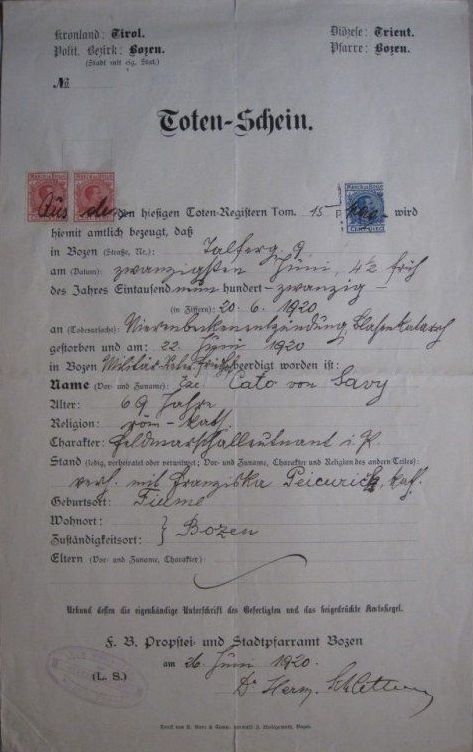 Kronland: Tirol.
Polit. Bezirk: Bozen.
(Stadt mit eig. Stat.)
Diözese: Trient.
Pfarre: Bozen.
№
Toten-Schein.
Aus den hiesigen Toten-Registern Tom. 15 pag. wird
hiemit amtlich bezeugt, daß
in Bozen (Straße, Nr.): Talferg. 9
am (Datum): zwanzigsten Juni, 4½ früh
des Jahres Eintausend neun hundert - zwanzig -
(in Ziffern): 20. 6. 1920
an (Todesursache): Nierenbeckenentzündung, Blasenkatarrh
gestorben und am: 22. Juni 1920
in Bozen Militär beerdigt worden ist:
Name (Vor- und Zuname): Cato von Savy
Alter: 69 Jahre
Religion: röm-kath.
Charakter: Feldmarschalleutnant i. P.
Stand (ledig, verheiratet oder verwitwet; Vor- und Zuname, Charakter und Religion des andern Teiles):
verh. mit Franziska Peicurich, kath.
Geburtsort: Fiume
Wohnort:
Zuständigkeitsort: } Bozen
Eltern (Vor- und Zuname, Charakter):
Urkund dessen die eigenhändige Unterschrift des Gefertigten und das beigedrückte Amtssiegel.
F. B. Propstei- und Stadtpfarramt Bozen
am 26. Juni 1920.
(L. S.)
Dr. Herm.